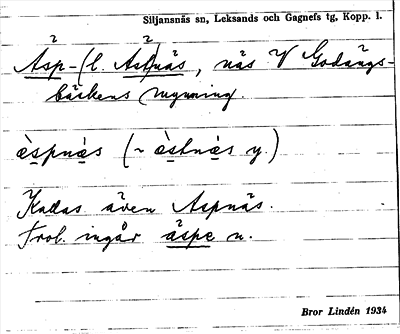 Siljansnäs sn, Leksands och Gagnefs tg, Kopp. l.
Asp-(l. Ast)näs, näs V Godängs-
bäckens mynning.
èspnès (~ èstnès y.)
Kallas även Aspnäs.
Trol. ingår äspe n.
Bror Lindén 1934